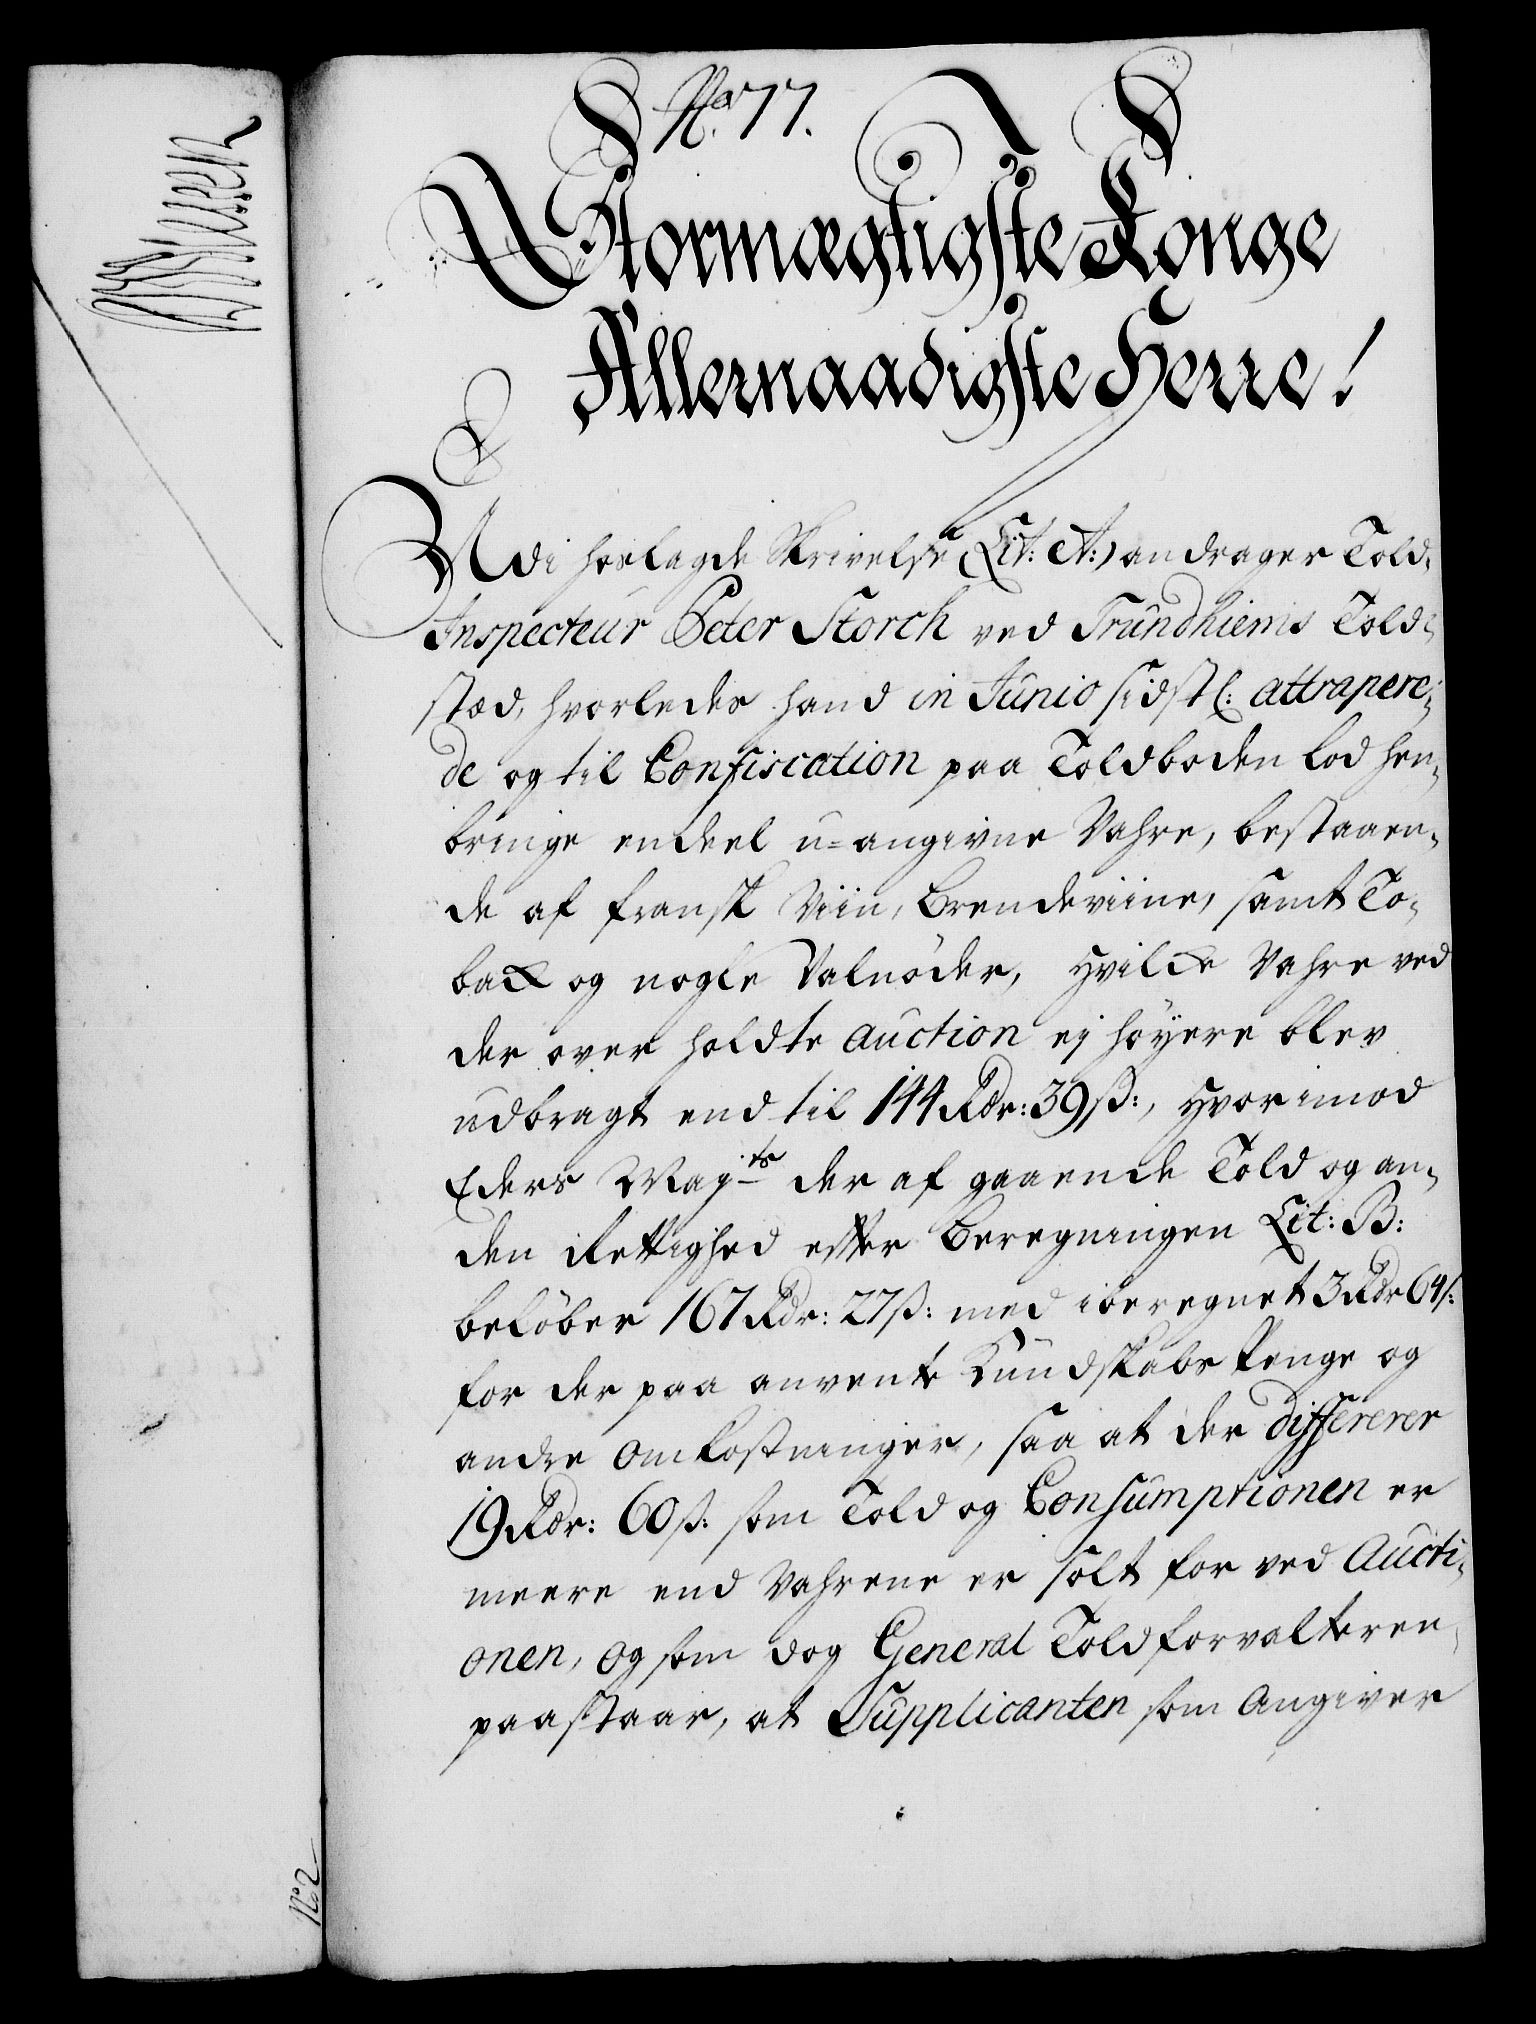 No. 77.
Stormægtigste Konge
Allernaadigste Herre!
Udi hoslagde Skrivelse (Lit: A:) andrager Told-
Inspecteur Peter Storch ved Trundhiems Told-
stæd, hvorledes hand in Junio sidstl: attrapere-
de og til Confiscation paa Toldboden lod hen-
bringe endeel u=angivne Vahre, bestaaen-
de af fransk Viin, Brendeviine, samt To-
bak og nogle Valnöder, hvilke Vahre ved
der over holdte auction ej höyere blev
udbragt end til 144 Rdr: 39 ß:, hvorimod
Eders Majts der af gaaende Told og an-
den Rettighed efter Beregningen Lit: B:
belöber 167 Rdr: 27 ß: med iberegnet 3 Rdr 64 ß:
for der paa anvente Kundskabs Penge og
andre Omkostninger, saa at der differerer
19 Rdr: 60 ß: som Told og Consumptionen er
meere end Vahrene er solt for ved Aucti-
onen, og som dog General Toldforvalteren
paastaar, at Supplicanten som Angiver
No. 2